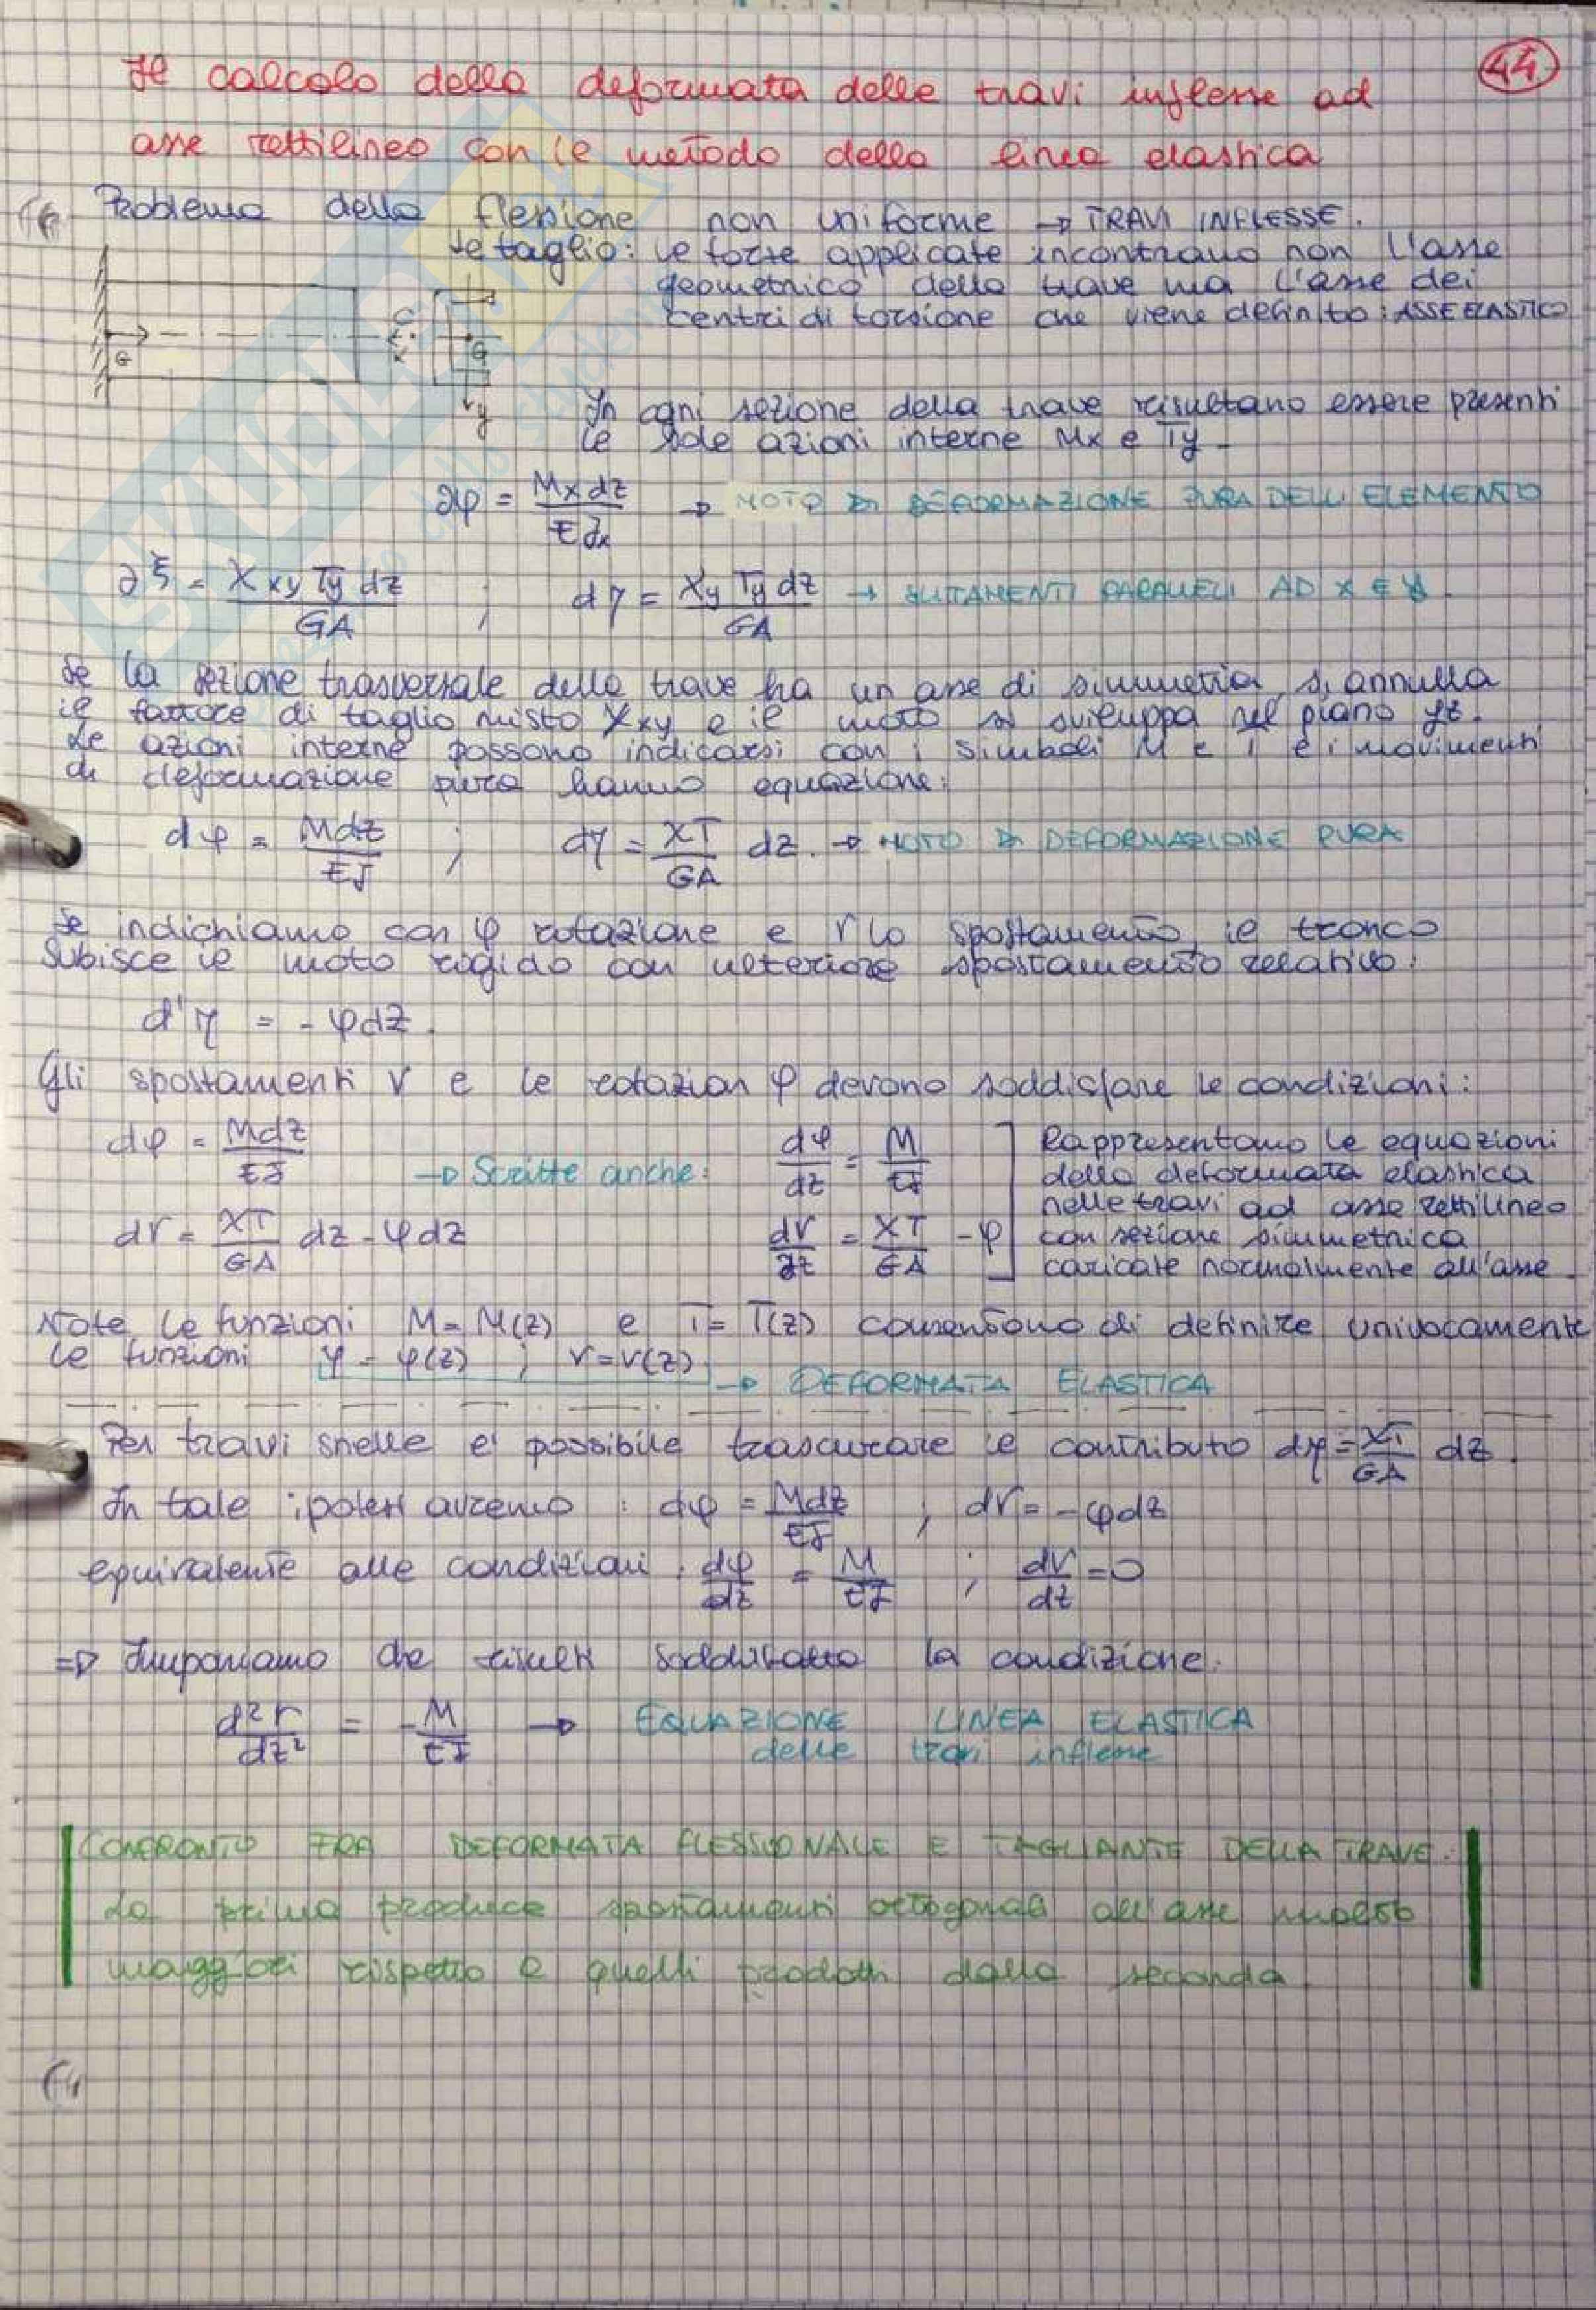 44
Il calcolo della deformata delle travi inflesse ad
asse rettilineo con il metodo della linea elastica
Problema della flessione non uniforme → TRAVI INFLESSE.
e taglio: le forze applicate incontrano non l'asse
geometrico della trave ma l'asse dei
centri di torsione che viene definito: ASSE ELASTICO
G
C
x
G
y
In ogni sezione della trave risultano essere presenti
le sole azioni interne Mx e Ty -
dφ = Mx dz / EJx → MOTO DI DEFORMAZIONE PURA DELL'ELEMENTO
dξ = χxy Ty dz / GA ; dη = χy Ty dz / GA → SLITTAMENTI PARALLELI AD X E Y.
Se la sezione trasversale della trave ha un asse di simmetria, si annulla
il fattore di taglio misto χxy e il moto si sviluppa nel piano yz.
Le azioni interne possono indicarsi con i simboli M e T e i movimenti
di deformazione pura hanno equazione:
dφ = Mdz / EJ ; dη = χT / GA dz. → MOTO DI DEFORMAZIONE PURA
Se indichiamo con φ rotazione e v lo spostamento, il tronco
subisce il moto rigido con ulteriore spostamento relativo:
d'η = - φdz.
Gli spostamenti v e le rotazion φ devono soddisfare le condizioni:
dφ = Mdz / EJ → Scritte anche: dφ/dz = M/EJ
dv = χT/GA dz - φdz dv/dz = χT/GA - φ
Rappresentano le equazioni
della deformata elastica
nelle travi ad asse rettilineo
con sezione simmetrica
caricate normalmente all'asse.
Note le funzioni M = M(z) e T = T(z) consentono di definire univocamente
le funzioni φ = φ(z) ; v = v(z)
→ DEFORMATA ELASTICA
Per travi snelle e' possibile trascurare il contributo dη = χT/GA dz.
In tale ipotesi avremo : dφ = Mdz / EJ ; dv = - φdz
equivalente alle condizioni : dφ/dz = M/EJ ; dv/dz = 0
⇒ Imponiamo che risulti soddisfatta la condizione:
d²v/dz² = - M/EJ → EQUAZIONE LINEA ELASTICA
delle travi inflesse
CONFRONTO FRA DEFORMATA FLESSIONALE E TAGLIANTE DELLA TRAVE:
La prima produce spostamenti ortogonali all'asse molto
maggiori rispetto a quelli prodotti dalla seconda